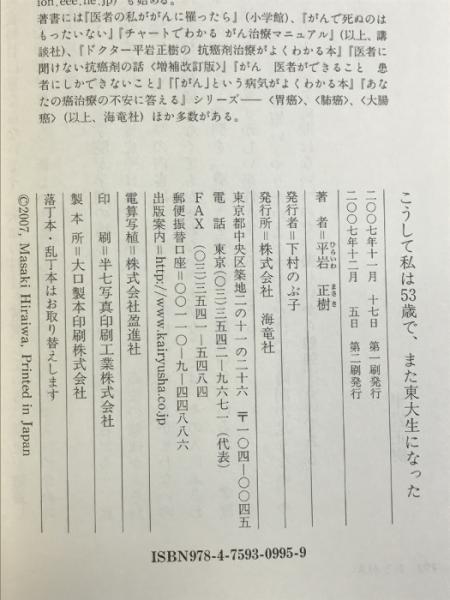 ion.eee.ne.jp)も始める。
著書には『医者の私ががんに罹ったら』(小学館)、『がんで死ぬのは
もったいない』『チャートでわかる がん治療マニュアル』(以上、講
談社)、『ドクター平岩正樹の 抗癌剤治療がよくわかる本』『医者に
聞けない抗癌剤の話〈増補改訂版〉』『がん 医者ができること 患
者にしかできないこと』『「がん」という病気がよくわかる本』『あな
たの癌治療の不安に答える』シリーズ――〈胃癌〉、〈肺癌〉、〈大腸
癌〉(以上、海竜社)ほか多数がある。
こうして私は53歳で、また東大生になった
二〇〇七年十一月 十七日 第一刷発行
二〇〇七年十二月 五日 第二刷発行
著 者=平岩 正樹
ひらいわ まさき
発行者=下村のぶ子
発行所=株式会社 海竜社
東京都中央区築地二の十一の二十六 〒一〇四―〇〇四五
電 話 東京(〇三)三五四二―九六七一(代表)
FAX (〇三)三五四一―五四八四
郵便振替口座=〇〇一一〇―九―四四八八六
出版案内=http://www.kairyusha.co.jp
電算写植=株式会社盈進社
印 刷=半七写真印刷工業株式会社
製本所=大口製本印刷株式会社
落丁本・乱丁本はお取り替えします
©2007, Masaki Hiraiwa, Printed in Japan
ISBN978-4-7593-0995-9